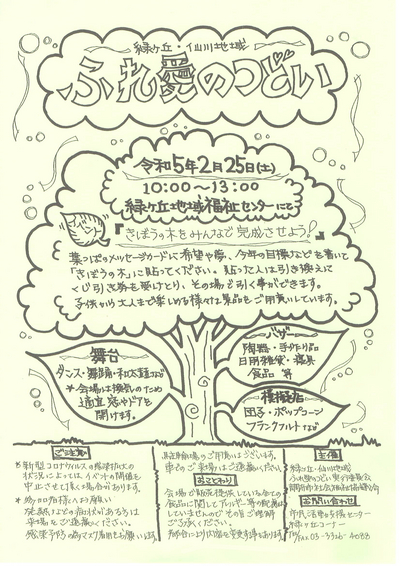 緑ヶ丘・仙川地域
ふれ愛のつどい
令和5年2月25日(土)
10:00〜13:00
緑ヶ丘地域福祉センターにて
『きぼうの木をみんなで完成させよう!』
葉っぱのメッセージカードに希望や夢、今年の目標などを書いて
「きぼうの木」に貼ってください。貼った人は引き換えに
くじ引き券を受けとり、その場で引く事ができます。
子供から大人まで楽しめる様々な景品をご用意しています。
舞台
ダンス・舞踊・和太鼓など
*会場は換気のため
適宜窓やドアを
開けます。
バザー
陶器・手作り品
日用雑貨・寝具
食品 等
模擬店
団子・ポップコーン
フランクフルトなど
ご注意
*新型コロナウイルスの感染拡大の
状況によっては、イベントの開催を
中止させて頂く場合があります。
発熱などの症状がある方は
来場をご遠慮ください。
駐輪場のご用意はございます。
車でのご来場はご遠慮ください。
おことわり
会場で販売提供している全ての
食品に関してアレルギー等の配慮は
していませんのでご理解
ご了承ください。
都合により内容を変更する事あります
主催
緑ヶ丘・仙川地域
ふれ愛のつどい実行委員会
お問い合わせ
市民活動支援センター
緑ヶ丘コーナー
03-3326-4088